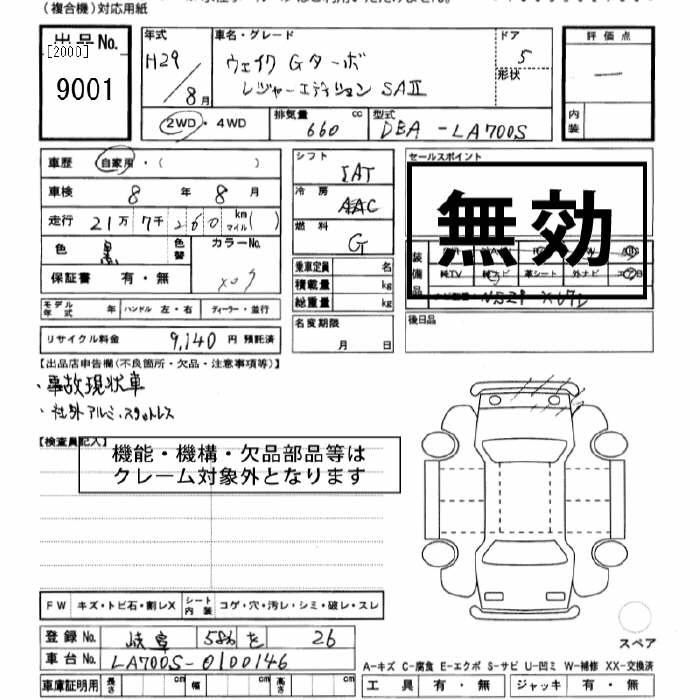 (複合機)対応用紙
出品No. [2000] 9001
年式 H29 / 8月
車名・グレード ウェイク Gターボ レジャーエディション SAⅡ
ドア 5 形状
評価点 —
内装
2WD・4WD
排気量 660 cc
型式 DBA-LA700S
車歴 自家用・( )
車検 8年 8月
走行 21万7千260 km マイル( )
色 黒 色替
カラーNo. X07
保証書 有・無
モデル年式 年 ハンドル 左・右 ディーラー・並行
リサイクル料金 9,140円 預託済
シフト IAT
冷房 AAC
燃料 G
乗車定員 名
積載量 kg
総重量 kg
名変期限 月 日
セールスポイント
無効
装備品
純TV 革シート 外ナビ
後日品
【出品店申告欄(不良箇所・欠品・注意事項等)】
・事故現状車
・社外アルミ・スタットレス
【検査員記入】
機能・機構・欠品部品等は
クレーム対象外となります
FW キズ・トビ石・割レX シート内装 コゲ・穴・汚レ・シミ・破レ・スレ
登録No. 岐阜 581 を 26
車台No. LA700S-0100146
車庫証明用 長さ cm 幅 cm 高さ cm
スペア
A-キズ C-腐食 E-エクボ S-サビ U-凹ミ W-補修 XX-交換済
工具 有・無 ジャッキ 有・無